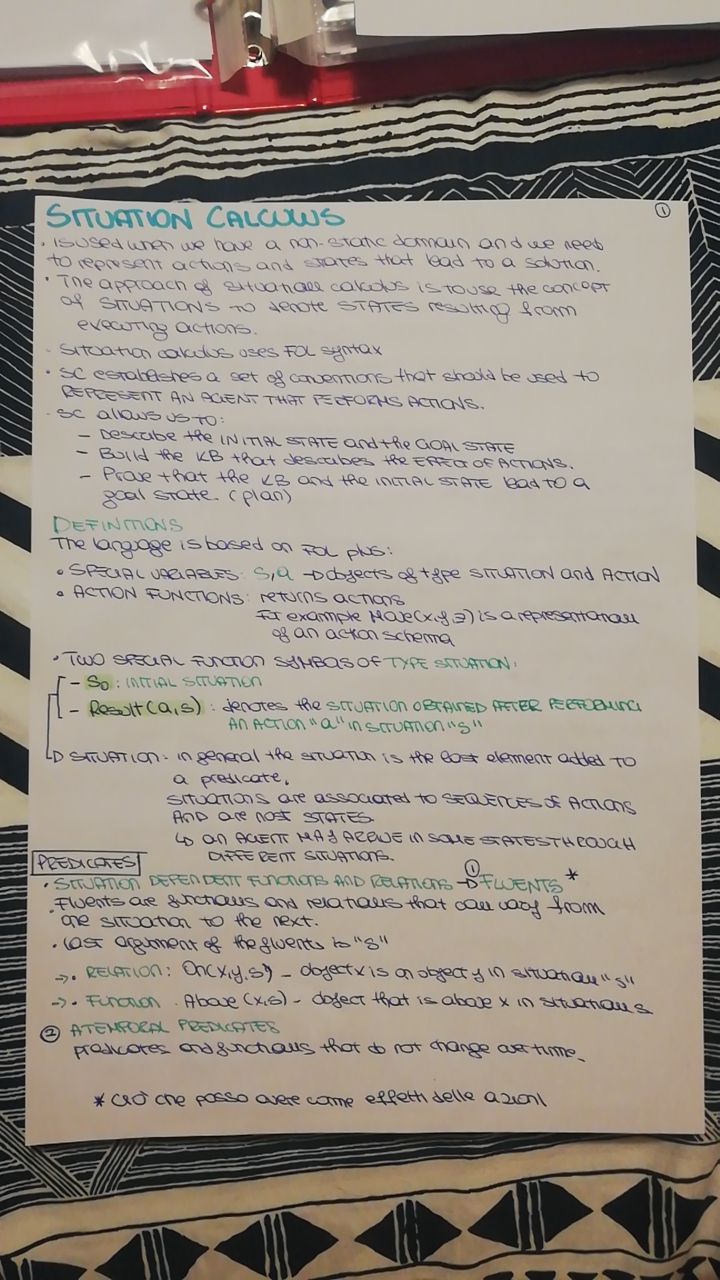 SITUATION CALCULUS
①
· Is used when we have a non-static domain and we need
to represent actions and states that lead to a solution.
· The approach of situation calculus is to use the concept
of SITUATIONS to denote STATES resulting from
executing actions.
- Situation calculus uses FOL syntax
· SC establishes a set of conventions that should be used to
REPRESENT AN AGENT THAT PERFORMS ACTIONS.
· SC allows us to:
- Describe the INITIAL STATE and the GOAL STATE
- Build the KB that describes the EFFECT OF ACTIONS.
- Prove that the KB and the INITIAL STATE lead to a
goal state. (plan)
DEFINITIONS
The language is based on FOL plus:
· SPECIAL VARIABLES: s,a → objects of type SITUATION and ACTION
· ACTION FUNCTIONS: returns actions
For example Move(x,y,z) is a representation
of an action schema
· TWO SPECIAL FUNCTION SYMBOLS OF TYPE SITUATION:
- S0: INITIAL SITUATION
- Result(a,s): denotes the SITUATION OBTAINED AFTER PERFORMING
AN ACTION "a" IN SITUATION "s"
→ SITUATION: in general the situation is the last element added to
a predicate.
SITUATIONS are associated to SEQUENCES OF ACTIONS
AND are not STATES
↳ an AGENT MAY ARRIVE IN SOME STATES THROUGH
DIFFERENT SITUATIONS.
PREDICATES
· SITUATION DEPENDENT FUNCTIONS AND RELATIONS → ① FLUENTS *
Fluents are functions and relations that can vary from
one situation to the next.
· Last argument of the fluents is "s"
→· RELATION: On(x,y,s) - object x is on object y in situation "s"
→· FUNCTION: Above (x,s) - object that is above x in situation s
② ATEMPORAL PREDICATES
predicates and functions that do not change over time.
* ciò che posso avere come effetti delle azioni